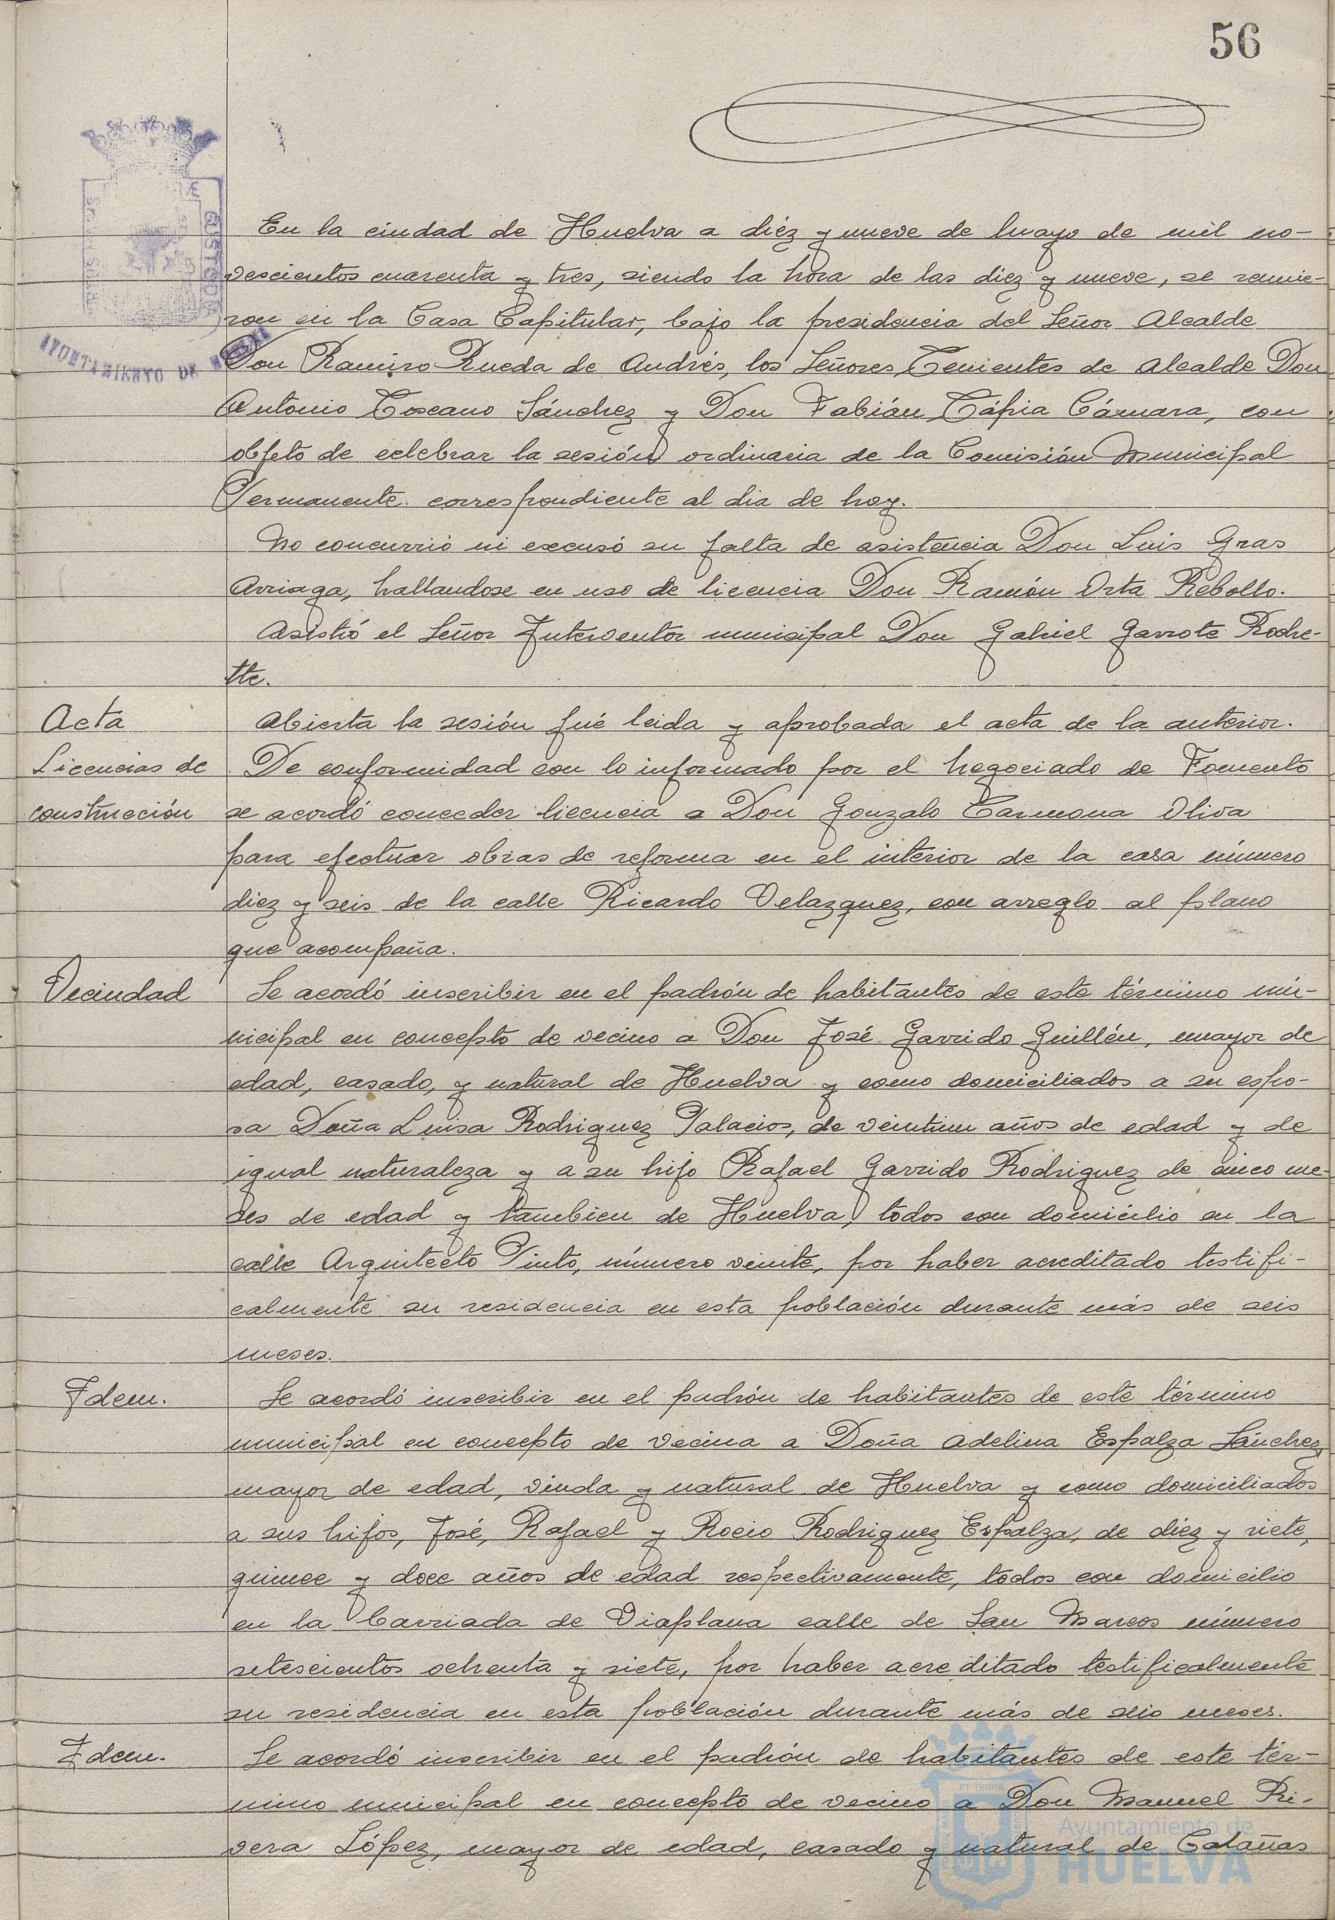 56
En la ciudad de Huelva a diéz y nueve de Mayo de mil no-
vescientos cuarenta y tres, siendo la hora de las diéz y nueve, se reunie-
ron en la Casa Capitular, bajo la presidencia del Señor Alcalde
Don Ramiro Rueda de Andrés, los Señores Tenientes de Alcalde Don
Antonio Toscano Sánchez y Don Fabián Tápia Cámara, con
objeto de celebrar la sesión ordinaria de la Comisión Municipal
Permanente correspondiente al dia de hoy.
No concurrió ni excusó su falta de asistencia Don Luis Gras
Arriaga, hallandose en uso de licencia Don Ramón Orta Rebollo.
Asistió el Señor Interventor municipal Don Gabriel Garrote Roche-
tte.
Acta
Abierta la sesión fué leida y aprobada el acta de la anterior.
Licencias de
construcción
De conformidad con lo informado por el Negociado de Fomento
se acordó conceder licencia a Don Gonzalo Carmona Oliva
para efectuar obras de reforma en el interior de la casa número
diez y seis de la calle Ricardo Velazquez, con arreglo al plano
que acompaña.
Vecindad
Se acordó inscribir en el padrón de habitantes de este término mu-
nicipal en concepto de vecino a Don José Garrido Guillén, mayor de
edad, casado, y natural de Huelva y como domiciliados a su espo-
sa Doña Luisa Rodriguez Palacios, de veintiun años de edad y de
igual naturaleza y a su hijo Rafael Garrido Rodriguez de cinco me-
ses de edad y tambien de Huelva, todos con domicilio en la
calle Arquitecto Pinto, número veinte, por haber acreditado testifi-
calmente su residencia en esta población durante más de seis
meses.
Idem.
Se acordó inscribir en el padrón de habitantes de este término
municipal en concepto de vecina a Doña Adelina Espalza Sánchez,
mayor de edad, viuda y natural de Huelva y como domiciliados
a sus hijos, José, Rafael y Rocio Rodriguez Espalza, de diéz y siete,
quince y doce años de edad respectivamente, todos con domicilio
en la barriada de Viaplana calle de San Marcos número
setescientos ochenta y siete, por haber acreditado testificalmente
su residencia en esta población durante más de seis meses.
Idem.
Se acordó inscribir en el padrón de habitantes de este tér-
mino municipal en concepto de vecino a Don Manuel Ri-
vera López, mayor de edad, casado y natural de Calañas
AYUNTAMIENTO DE
Ayuntamiento de
HUELVA